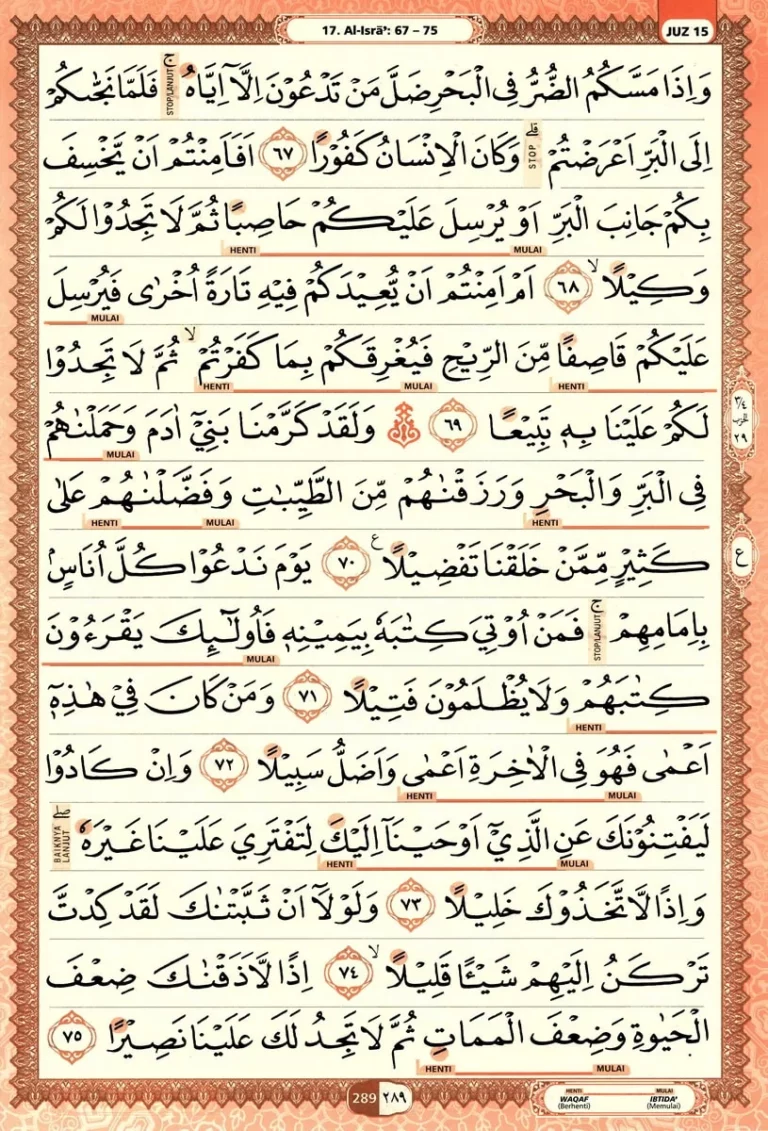 17. Al-Isrā': 67 – 75
JUZ 15
وَاِذَا مَسَّكُمُ الضُّرُّ فِى الْبَحْرِ ضَلَّ مَنْ تَدْعُوْنَ اِلَّآ اِيَّاهُ ۚ فَلَمَّا نَجّٰىكُمْ
STOP/LANJUT
اِلَى الْبَرِّ اَعْرَضْتُمْ ۗ وَكَانَ الْاِنْسَانُ كَفُوْرًا ٦٧ اَفَاَمِنْتُمْ اَنْ يَّخْسِفَ
STOP
بِكُمْ جَانِبَ الْبَرِّ اَوْ يُرْسِلَ عَلَيْكُمْ حَاصِبًا ثُمَّ لَا تَجِدُوْا لَكُمْ
MULAI HENTI
وَكِيْلًا ۙ ٦٨ اَمْ اَمِنْتُمْ اَنْ يُّعِيْدَكُمْ فِيْهِ تَارَةً اُخْرٰى فَيُرْسِلَ
MULAI
عَلَيْكُمْ قَاصِفًا مِّنَ الرِّيْحِ فَيُغْرِقَكُمْ بِمَا كَفَرْتُمْ ۙ ثُمَّ لَا تَجِدُوْا
HENTI MULAI HENTI
لَكُمْ عَلَيْنَا بِهٖ تَبِيْعًا ٦٩ ۞ وَلَقَدْ كَرَّمْنَا بَنِيْٓ اٰدَمَ وَحَمَلْنٰهُمْ
MULAI
٣/٤ الحزب ٢٩
فِى الْبَرِّ وَالْبَحْرِ وَرَزَقْنٰهُمْ مِّنَ الطَّيِّبٰتِ وَفَضَّلْنٰهُمْ عَلٰى
HENTI MULAI HENTI
كَثِيْرٍ مِّمَّنْ خَلَقْنَا تَفْضِيْلًا ࣖ ٧٠ يَوْمَ نَدْعُوْا كُلَّ اُنَاسٍۢ
ع
بِاِمَامِهِمْ ۚ فَمَنْ اُوْتِيَ كِتٰبَهٗ بِيَمِيْنِهٖ فَاُولٰۤىِٕكَ يَقْرَءُوْنَ
STOP/LANJUT MULAI
كِتٰبَهُمْ وَلَا يُظْلَمُوْنَ فَتِيْلًا ٧١ وَمَنْ كَانَ فِيْ هٰذِهٖٓ
HENTI
اَعْمٰى فَهُوَ فِى الْاٰخِرَةِ اَعْمٰى وَاَضَلُّ سَبِيْلًا ٧٢ وَاِنْ كَادُوْا
MULAI HENTI
لَيَفْتِنُوْنَكَ عَنِ الَّذِيْٓ اَوْحَيْنَآ اِلَيْكَ لِتَفْتَرِيَ عَلَيْنَا غَيْرَهٗ ۖ
MULAI HENTI BAIKNYA LANJUT
وَاِذًا لَّاتَّخَذُوْكَ خَلِيْلًا ٧٣ وَلَوْلَآ اَنْ ثَبَّتْنٰكَ لَقَدْ كِدْتَّ
تَرْكَنُ اِلَيْهِمْ شَيْـًٔا قَلِيْلًا ۙ ٧٤ اِذًا لَّاَذَقْنٰكَ ضِعْفَ
الْحَيٰوةِ وَضِعْفَ الْمَمَاتِ ثُمَّ لَا تَجِدُ لَكَ عَلَيْنَا نَصِيْرًا ٧٥
MULAI HENTI
289 ٢٨٩
HENTI MULAI
WAQAF IBTIDA'
(Berhenti) (Memulai)